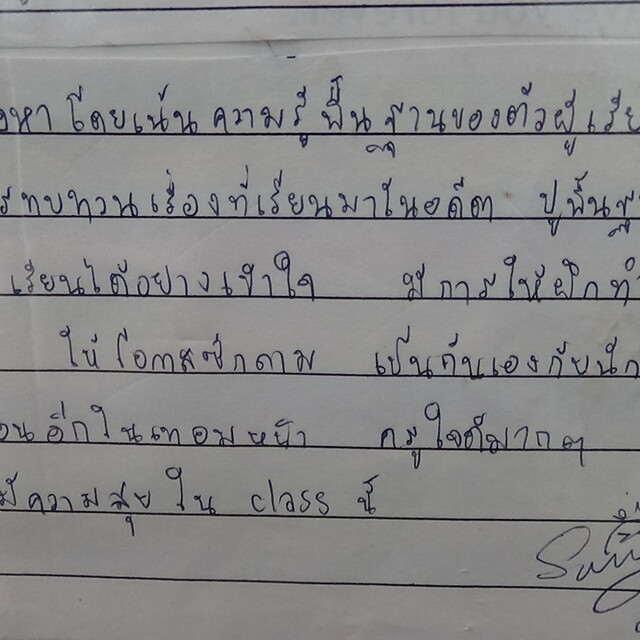 ve you forever.
โดยเน้น ความรู้ พื้นฐานของตัวผู้เรีย
ทบทวนเรื่องที่เรียนมาในอดีต ปูพื้นฐ
เรียนได้อย่างเข้าใจ มีการให้ฝึกทำ
ให้โอกาสซักถาม เป็นกันเองกับนัก
อีกในเทอมหน้า ครูใจดีมากๆ
มีความสุขใน class นี้